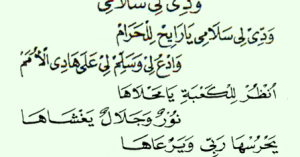 وَدِّى لِى سَلَامِى
وَدِّى لِى سَلَامِى يَارَايِحْ لِلْحَرَامْ
وَادْعُ لِىْ وَسَلِّمْ لِىْ عَلَى هَادِى الْأُمَمْ
اُنْظُرْ لِلْكَعْبَةِ يَا مَحْلَاهَا
نُوْرٌ وَجَلَالٌ يَغْشَاهَا
يَحْرُسُهَا رَبِّى وَيَرْعَاهَا